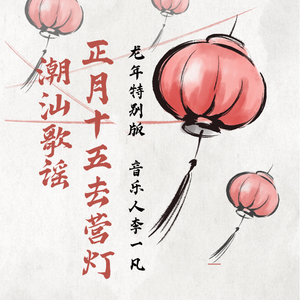 龙年特别版 音乐人李一凡
正月十五去营灯
潮汕歌谣